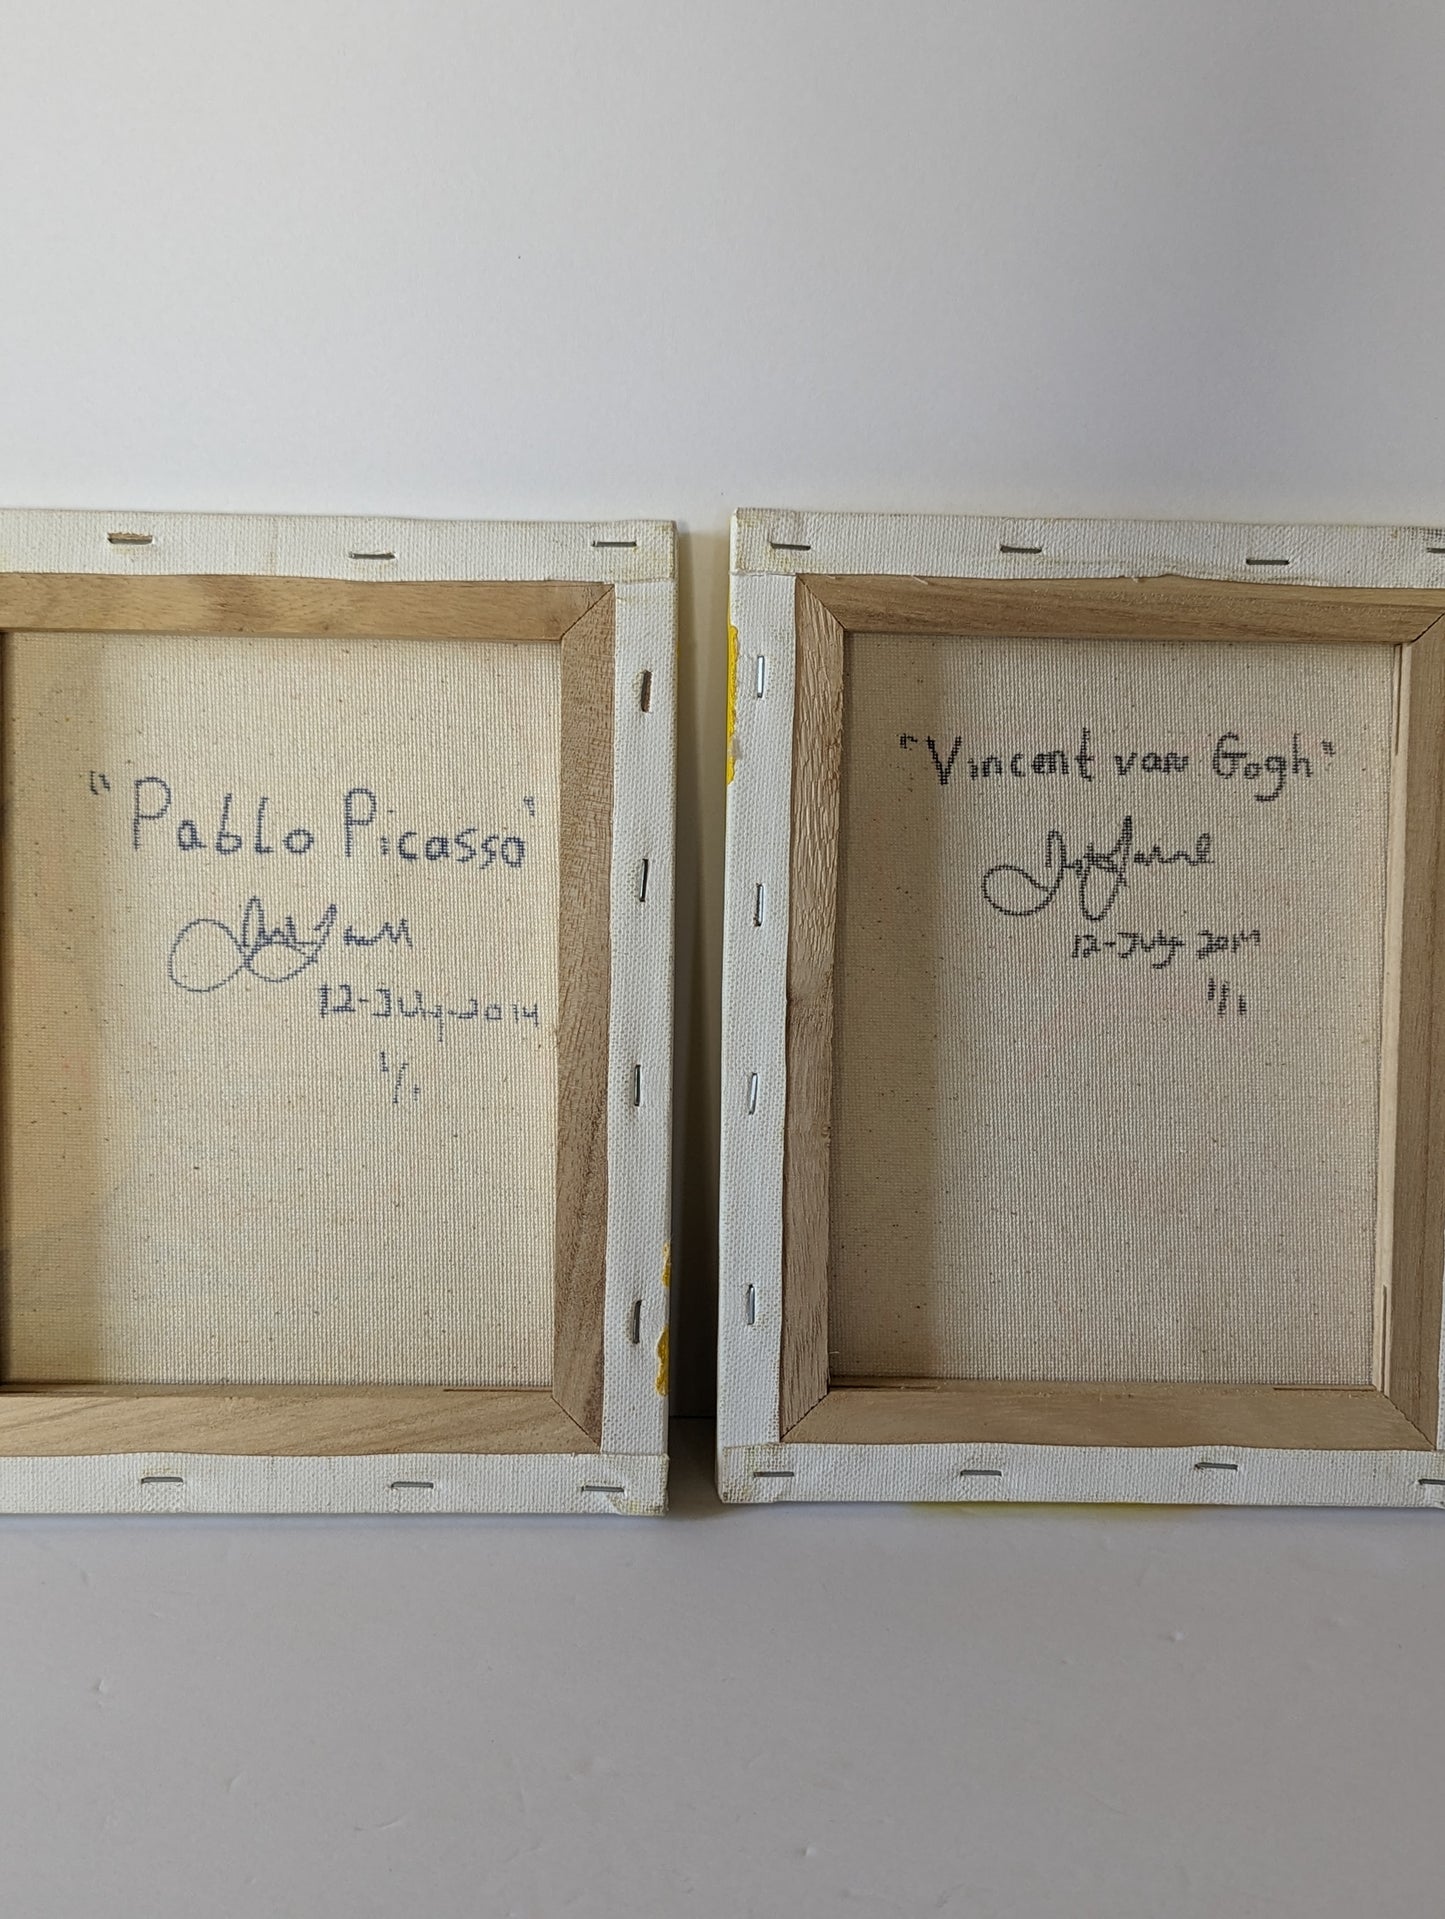 "Pablo Picasso"
12-July-2014
1/1
"Vincent van Gogh"
12-July 2014
1/1